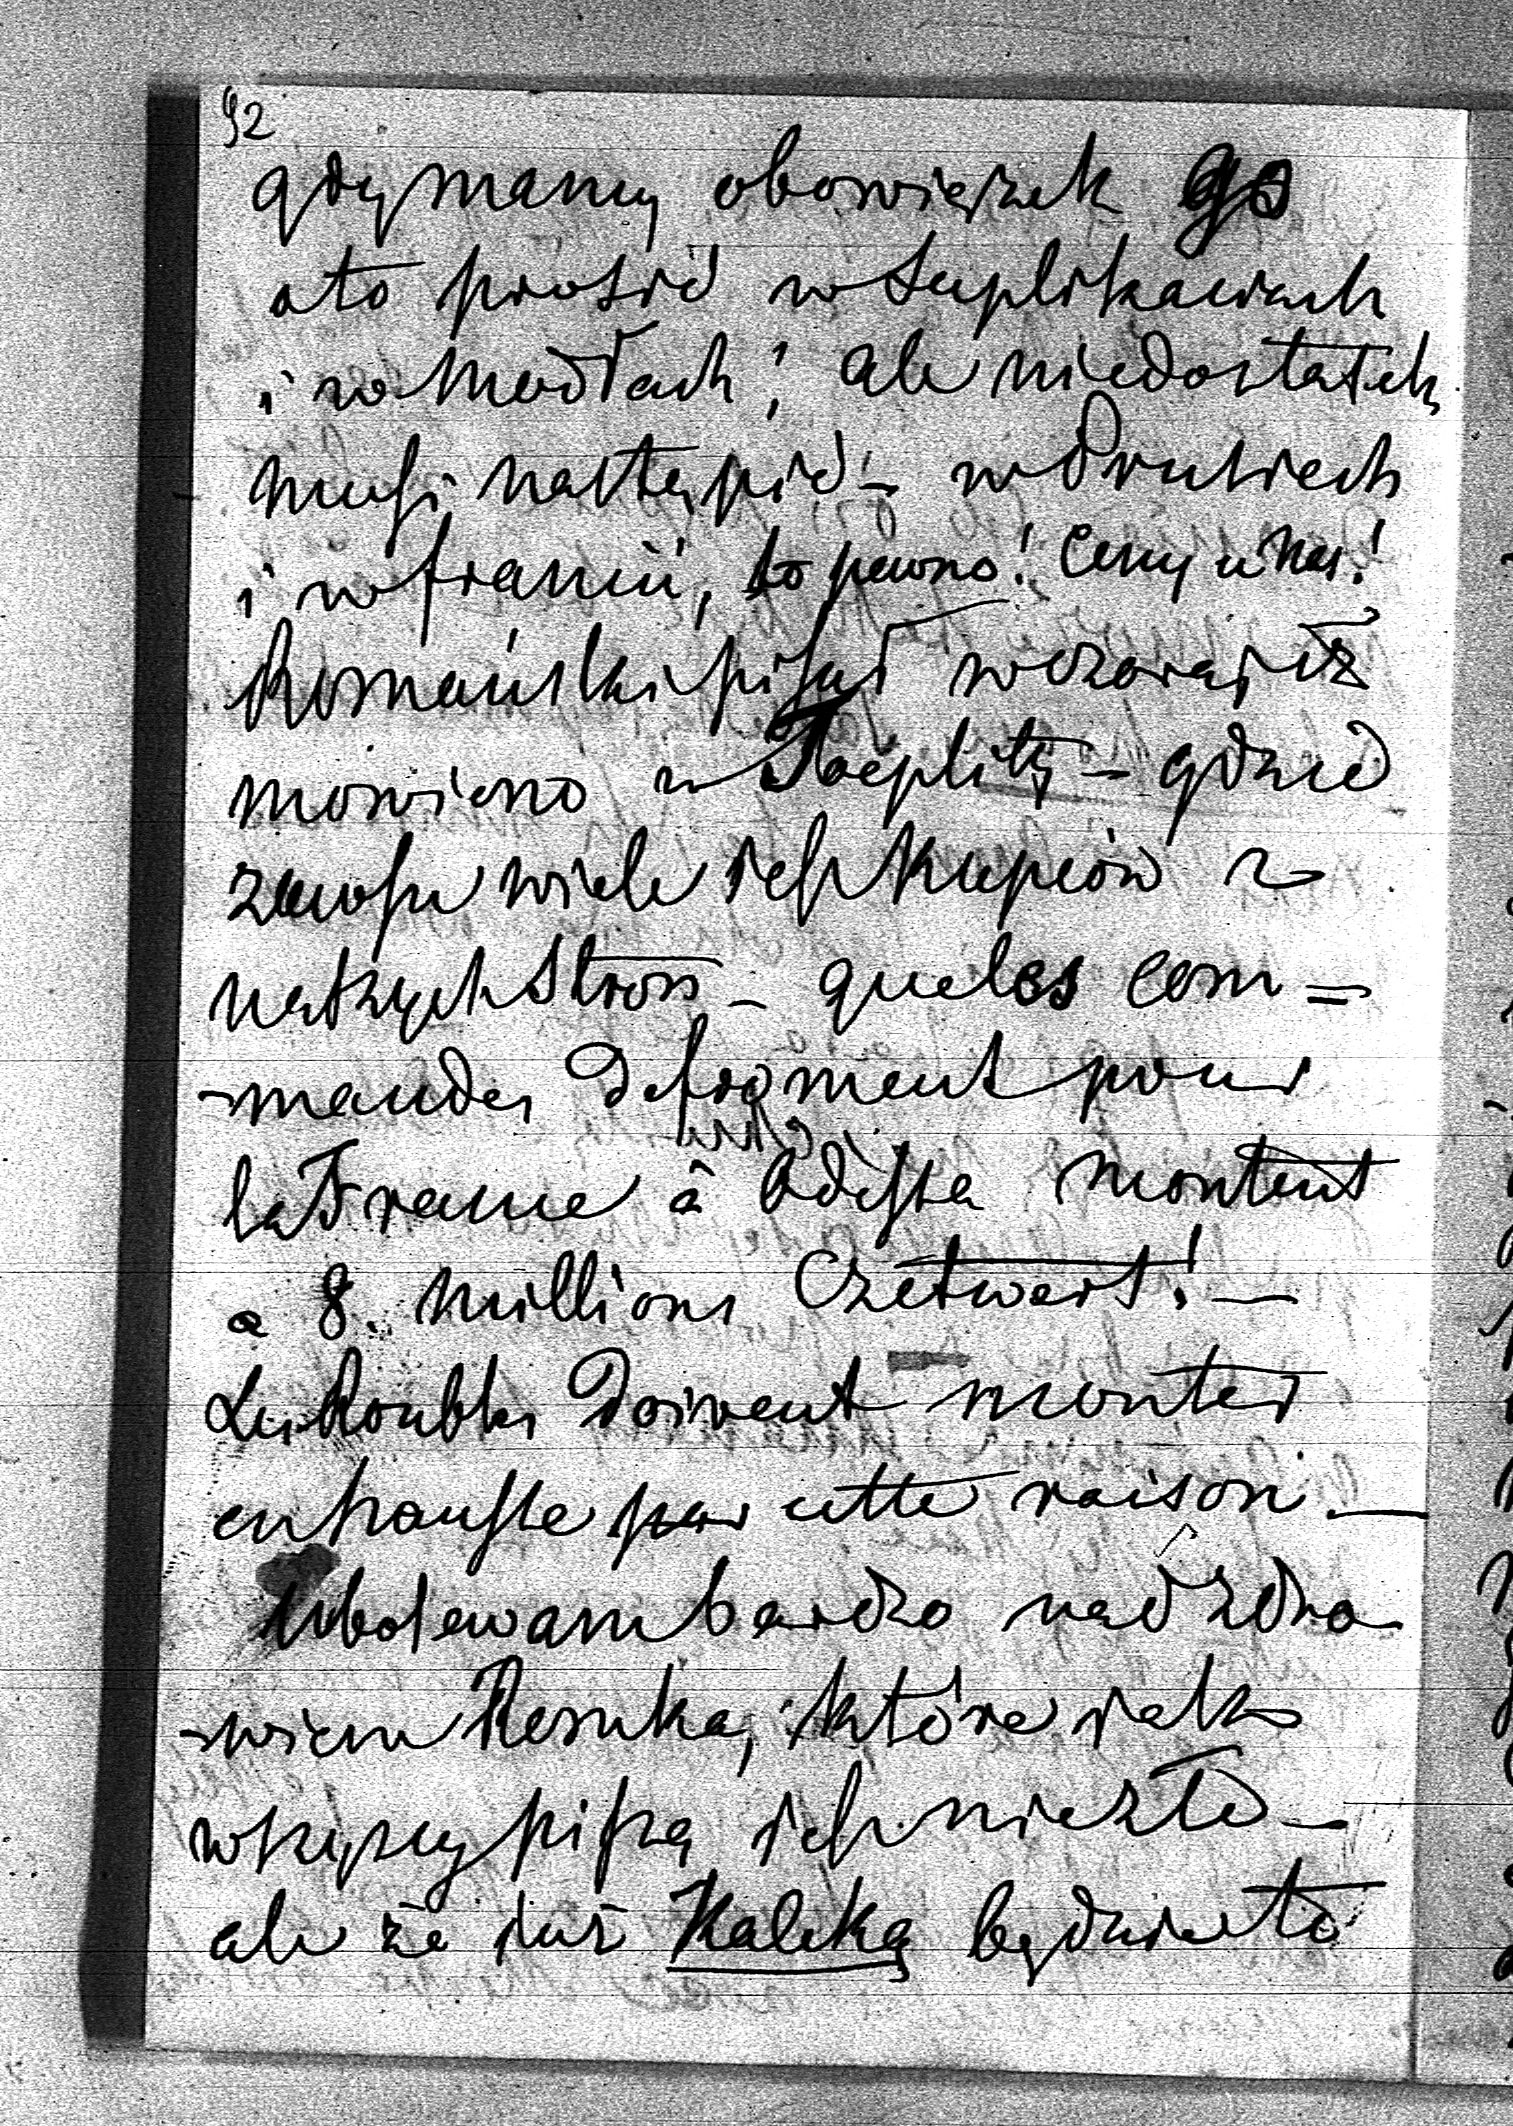 92
gdy mamy obowiązek go
oto prosić w Suplikaciach
i w modłach; ale niedostatek
musi nastąpić – w Prusiech
i w francii, to pewno! Ceny u nas!
Romański pisał wczoraj iż
mowiono u Toeplitz – gdzie
zawsze wiele jest kupców z
naszych stron – que les com =
mandes de froment pour
la France à Odessa montent
a 8. millions Czetwert! –
Les Roubles doivent monter
en hausse par cette raison –
Ubolewam bardzo nad zdro
-wiem Romka, które jak
wszyscy piszą jest nie złe –
ale że już Kaleką będzie to